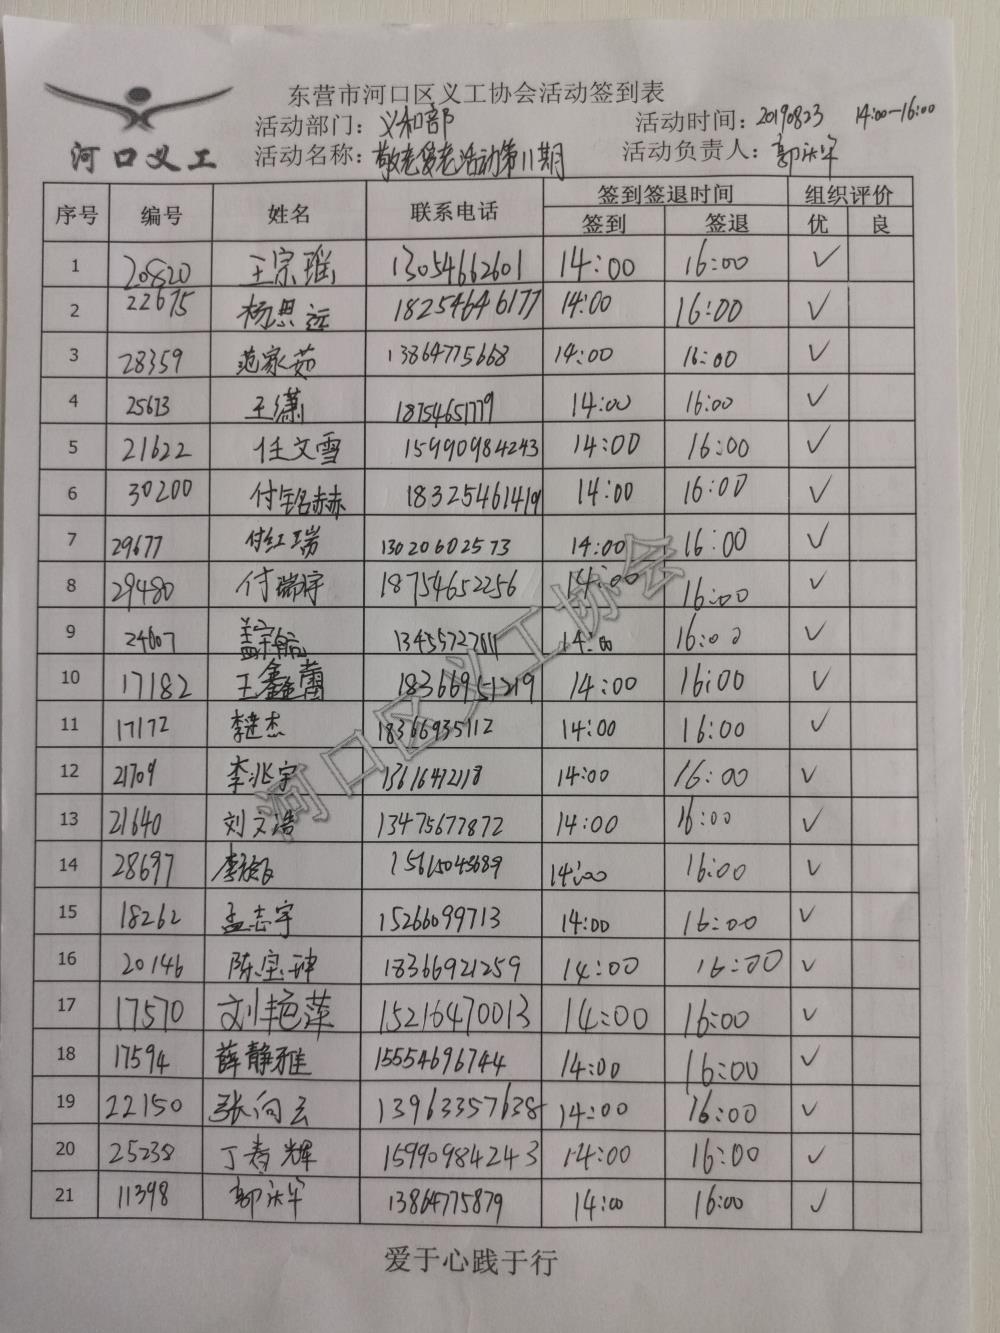 东营市河口区义工协会活动签到表
河口义工
活动部门：义和部 活动时间：20190823 14:00-16:00
活动名称：敬老爱老活动第11期 活动负责人：郭庆军
序号 编号 姓名 联系电话 签到签退时间 组织评价
签到 签退 优 良
1 20820 王宗瑶 13054662601 14:00 16:00 ✓
2 22675 杨思远 18254646177 14:00 16:00 ✓
3 28359 范家茹 13864775668 14:00 16:00 ✓
4 25673 王潇 18754651779 14:00 16:00 ✓
5 21622 任文雪 15990984243 14:00 16:00 ✓
6 30200 付铭赫 18325461419 14:00 16:00 ✓
7 29677 付红瑞 13020602573 14:00 16:00 ✓
8 29480 付瑞宇 18754652256 14:00 16:00 ✓
9 24607 盖宗航 14:00 16:00 ✓
10 17182 王鑫蕾 18366951219 14:00 16:00 ✓
11 17172 李建杰 18366935112 14:00 16:00 ✓
12 21709 李兆宇 14:00 16:00 ✓
13 21640 刘文浩 13475677872 14:00 16:00 ✓
14 28697 14:00 16:00 ✓
15 18262 孟志宇 15266099713 14:00 16:00 ✓
16 20146 陈宝珅 18366921259 14:00 16:00 ✓
17 17570 刘艳萍 15216470013 14:00 16:00 ✓
18 17594 薛静雅 15554696744 14:00 16:00 ✓
19 22150 张向云 13963357638 14:00 16:00 ✓
20 25238 丁寿辉 15990984243 14:00 16:00 ✓
21 11398 郭庆军 13864775879 14:00 16:00 ✓
河口区义工协会
爱于心践于行